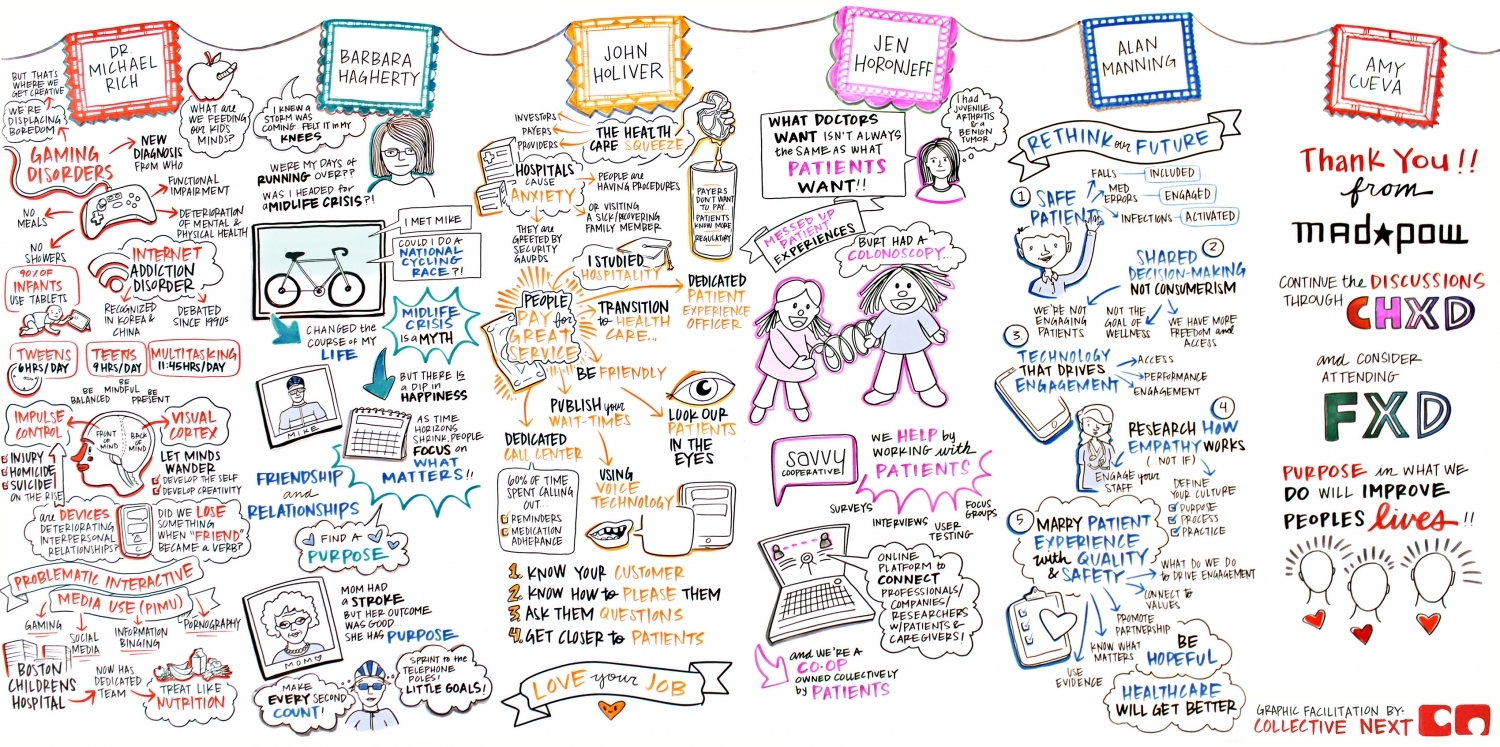 DR.
MICHAEL
RICH
BUT THAT'S
WHERE WE
GET CREATIVE
WE'RE
DISPLACING
BOREDOM
WHAT are
WE FEEDING
our KID'S
MINDS?
GAMING
DISORDERS
NEW
DIAGNOSIS
FROM WHO
FUNCTIONAL
IMPAIRMENT
NO
MEALS
DETERIORATION
OF MENTAL &
PHYSICAL HEALTH
NO
SHOWERS
90% OF
INFANTS
USE TABLETS
INTERNET
ADDICTION
DISORDER
RECOGNIZED
IN KOREA &
CHINA
DEBATED
SINCE 1990s
TWEENS
6HRS/DAY
TEENS
9HRS/DAY
MULTITASKING
11:45HRS/DAY
BE
BALANCED
BE
MINDFUL
BE
PRESENT
IMPULSE
CONTROL
FRONT
OF
MIND
BACK
OF
MIND
VISUAL
CORTEX
INJURY
HOMICIDE
SUICIDE
ON THE RISE
LET MINDS
WANDER
DEVELOP THE SELF
DEVELOP CREATIVITY
are DEVICES
DETERIORATING
INTERPERSONAL
RELATIONSHIPS?
DID WE LOSE
SOMETHING
WHEN "FRIEND"
BECAME A VERB?
PROBLEMATIC INTERACTIVE
MEDIA USE (PIMU)
GAMING
SOCIAL
MEDIA
INFORMATION
BINGING
PORNOGRAPHY
BOSTON
CHILDRENS
HOSPITAL
NOW HAS
DEDICATED
TEAM
TREAT LIKE
NUTRITION
BARBARA
HAGHERTY
I KNEW A
STORM WAS
COMING. FELT IT in MY
KNEES
WERE MY DAYS OF
RUNNING OVER??
WAS I HEADED for
a MIDLIFE CRISIS?!
I MET MIKE
COULD I DO A
NATIONAL
CYCLING
RACE?!
CHANGED the
COURSE OF MY
LIFE
MIDLIFE
CRISIS
is a MYTH
BUT THERE IS
a DIP in
HAPPINESS
MIKE
AS TIME
HORIZONS
SHRINK, PEOPLE
FOCUS on
WHAT
MATTERS!!
FRIENDSHIP
and
RELATIONSHIPS
FIND A
PURPOSE
MOM HAD
a STROKE
BUT HER OUTCOME
WAS GOOD...
SHE HAS PURPOSE
MOM
MAKE
EVERY SECOND
COUNT!
SPRINT to the
TELEPHONE
POLES!
LITTLE GOALS!
JOHN
HOLIVER
INVESTORS
PAYERS
PROVIDERS
THE HEALTH
CARE SQUEEZE
HOSPITALS
CAUSE
ANXIETY
PEOPLE are
HAVING PROCEDURES
OR VISITING
A SICK/RECOVERING
FAMILY MEMBER
THEY ARE
GREETED BY
SECURITY
GAURDS
PAYERS
DON'T WANT
TO PAY.
PATIENTS
KNOW MORE
REGULATORY
I STUDIED
HOSPITALITY
PEOPLE
PAY for
GREAT
SERVICE
TRANSITION
to HEALTH
CARE...
DEDICATED
PATIENT
EXPERIENCE
OFFICER
BE FRIENDLY
PUBLISH your
WAIT-TIMES
LOOK OUR
PATIENTS
IN THE
EYES
DEDICATED
CALL CENTER
60% OF TIME
SPENT CALLING
OUT...
REMINDERS
MEDICATION
ADHERANCE
USING
VOICE
TECHNOLOGY
1. KNOW YOUR CUSTOMER
2. KNOW HOW to PLEASE THEM
3. ASK THEM QUESTIONS
4. GET CLOSER to PATIENTS
LOVE your JOB
JEN
HORONJEFF
WHAT DOCTORS
WANT ISN'T ALWAYS
the SAME AS WHAT
PATIENTS
WANT!!
I had
JUVENILE
ARTHRITIS
& a
BENIGN
TUMOR
MESSED UP
PATIENT
EXPERIENCES
BURT HAD A
COLONOSCOPY...
savvy
COOPERATIVE
WE HELP by
WORKING with
PATIENTS
SURVEYS
INTERVIEWS
USER
TESTING
FOCUS
GROUPS
ONLINE
PLATFORM to
CONNECT
PROFESSIONALS/
COMPANIES/
RESEARCHERS
W/PATIENTS &
CAREGIVERS!
and WE'RE A
CO-OP
OWNED COLLECTIVELY
by PATIENTS
ALAN
MANNING
RETHINK our FUTURE
1 SAFE
PATIENT
FALLS
MED
ERRORS
INFECTIONS
INCLUDED
ENGAGED
ACTIVATED
2
SHARED
DECISION-MAKING
NOT CONSUMERISM
WE'RE NOT
ENGAGING
PATIENTS
NOT THE
GOAL OF
WELLNESS
WE HAVE MORE
FREEDOM and
ACCESS
3
TECHNOLOGY
THAT DRIVES
ENGAGEMENT
ACCESS
PERFORMANCE
ENGAGEMENT
4
RESEARCH HOW
EMPATHY WORKS
(NOT IF)
ENGAGE YOUR
STAFF
DEFINE
YOUR CULTURE
PURPOSE
PROCESS
PRACTICE
5
MARRY PATIENT
EXPERIENCE
with QUALITY
& SAFETY
WHAT DO WE DO
to DRIVE ENGAGEMENT
CONNECT to
VALUES
PROMOTE
PARTNERSHIP
KNOW WHAT
MATTERS
USE
EVIDENCE
BE
HOPEFUL
HEALTHCARE
WILL GET BETTER
AMY
CUEVA
Thank You!!
from
mad★pow
CONTINUE the DISCUSSIONS
THROUGH CHXD
and CONSIDER
ATTENDING
FXD
PURPOSE in WHAT WE
DO WILL IMPROVE
PEOPLES lives!!
GRAPHIC FACILITATION BY:
COLLECTIVE NEXT